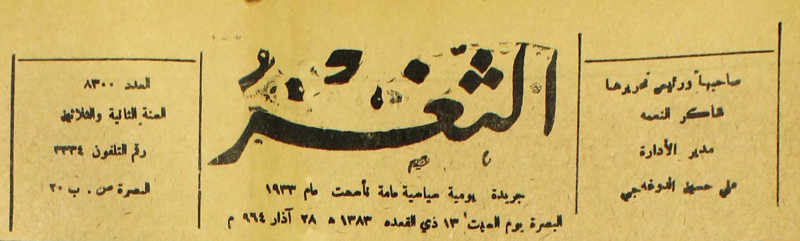 صاحبها ورئيس تحريرها
شاكر النعمه
مدير الأدارة
علي حسين
الثغر
جريدة يومية سياسية عامة تأسست عام ١٩٣٣
البصرة يوم السبت ١٣ ذي القعده ١٣٨٣ ه ٢٨ آذار ٩٦٤ م
العدد ٨٣٠٠
السنة الثانية والثلاثين
رقم التلفون ٣٣٣٤
البصرة ص . ب ٢٠